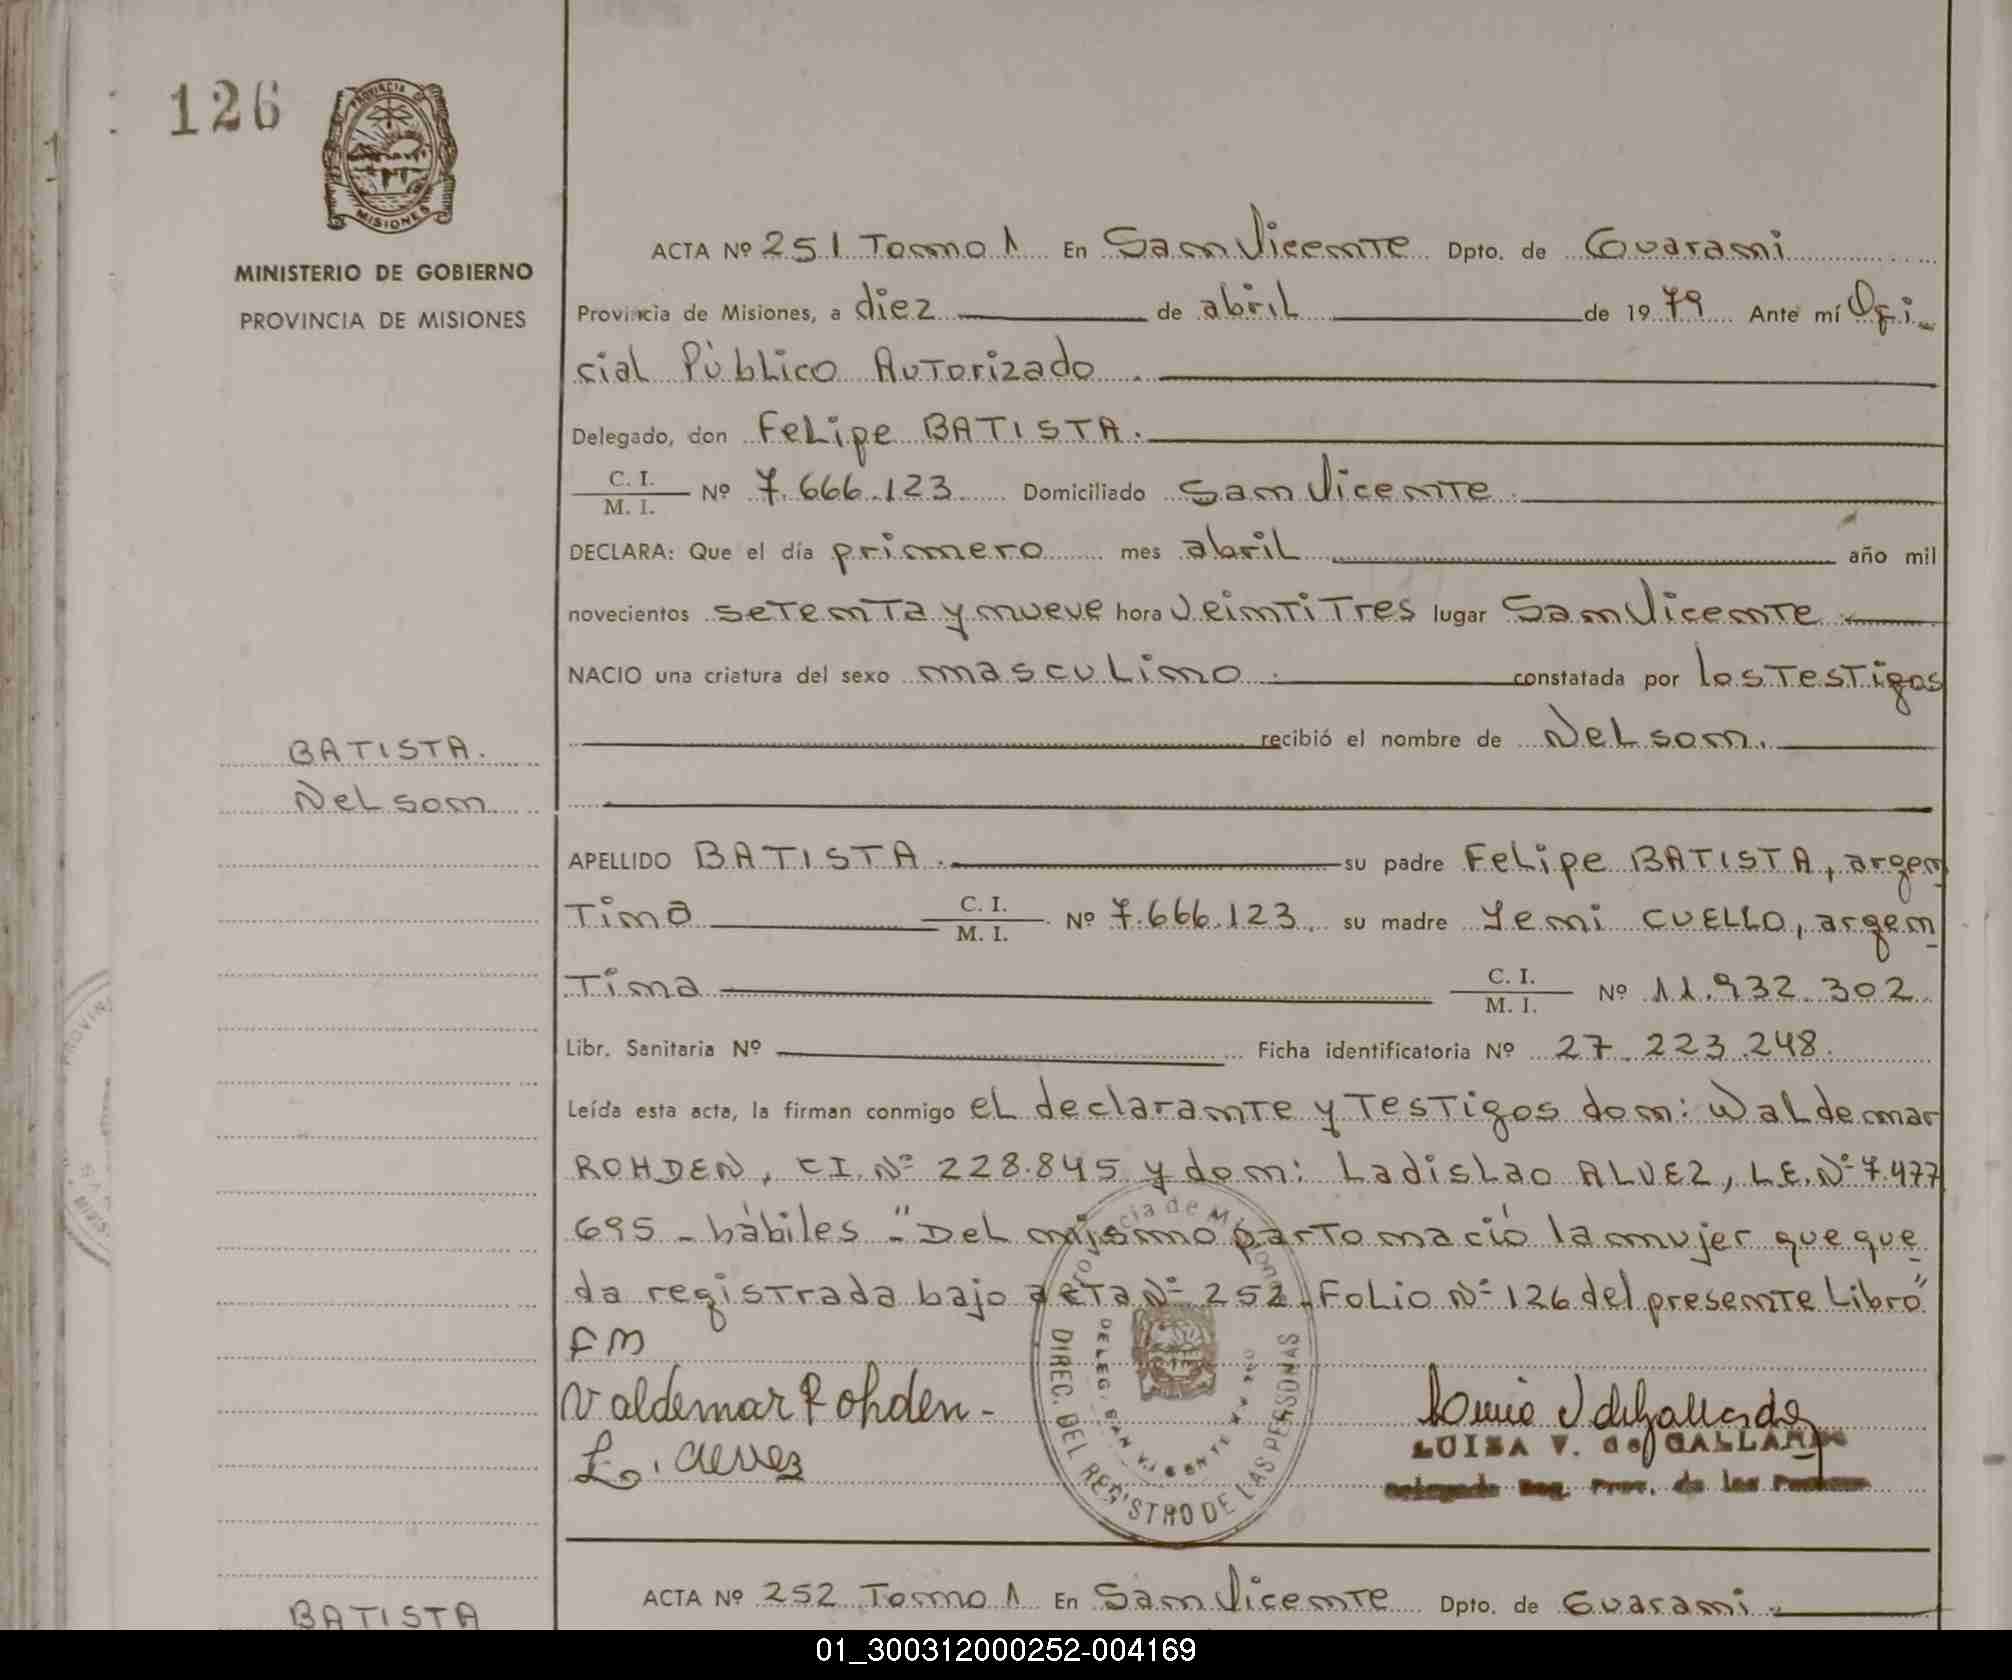 126
PROVINCIA DE
MISIONES
MINISTERIO DE GOBIERNO
PROVINCIA DE MISIONES
ACTA Nº 251 Tomo 1 En San Vicente Dpto. de Guarani
Provincia de Misiones, a diez de abril de 1979 Ante mí Ofi-
cial Público Autorizado
Delegado, don Felipe BATISTA.
C. I.
M. I. Nº 7.666.123 Domiciliado San Vicente
DECLARA: Que el día primero mes abril año mil
novecientos setenta y nueve hora veintitres lugar San Vicente
NACIO una criatura del sexo masculino constatada por los testigos
recibió el nombre de Nelson.
BATISTA.
Nelson
APELLIDO BATISTA su padre Felipe BATISTA, argen
tino C. I. M. I. Nº 7.666.123 su madre Yeni CUELLO, argen
tina C. I. M. I. Nº 11.932.302
Libr. Sanitaria Nº Ficha identificatoria Nº 27.223.248
Leída esta acta, la firman conmigo el declarante y testigos don: Waldemar
ROHDEN, CI. Nº 228.845 y don: Ladislao ALVEZ, L.E. Nº 7.477
695 - hábiles - "Del mismo parto nació la mujer que que
da registrada bajo acta Nº 252 - Folio Nº 126 del presente Libro"
FM
Valdemar Rohden -
L. Alves
LUISA V. de GALLARDO
Delegada Reg. Prov. de las Personas
Provincia de Misiones
DELEG. SAN VICENTE
DIREC. DEL REGISTRO DE LAS PERSONAS
ACTA Nº 252 Tomo 1 En San Vicente Dpto. de Guarani
BATISTA
01_300312000252-004169